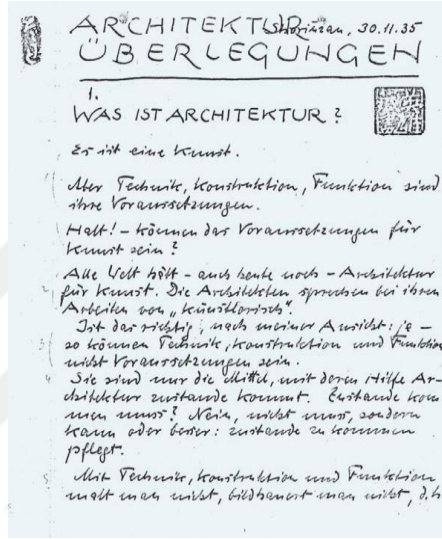 ARCHITEKTUR Shorinzan, 30.11.35
ÜBERLEGUNGEN
1.
WAS IST ARCHITEKTUR?
Es ist eine Kunst.
1 Aber Technik, Konstruktion, Funktion sind
ihre Voraussetzungen.
Halt! – können das Voraussetzungen für
Kunst sein?
Alle Welt hält – auch heute noch – Architektur
2 für Kunst. Die Architekten sprechen bei ihren
Arbeiten von „künstlerisch“.
Ist das richtig, nach meiner Ansicht: ja –
3 so können Technik, Konstruktion und Funktion
nicht Voraussetzungen sein.
4 Sie sind nur die Mittel, mit deren Hilfe Ar-
chitektur zustande kommt. Zustande kom
men muss? Nein, nicht muss, sondern
kann oder besser: zustande zu kommen
pflegt.
5 Mit Technik, Konstruktion und Funktion
malt man nicht, bildhauert man nicht, d.h